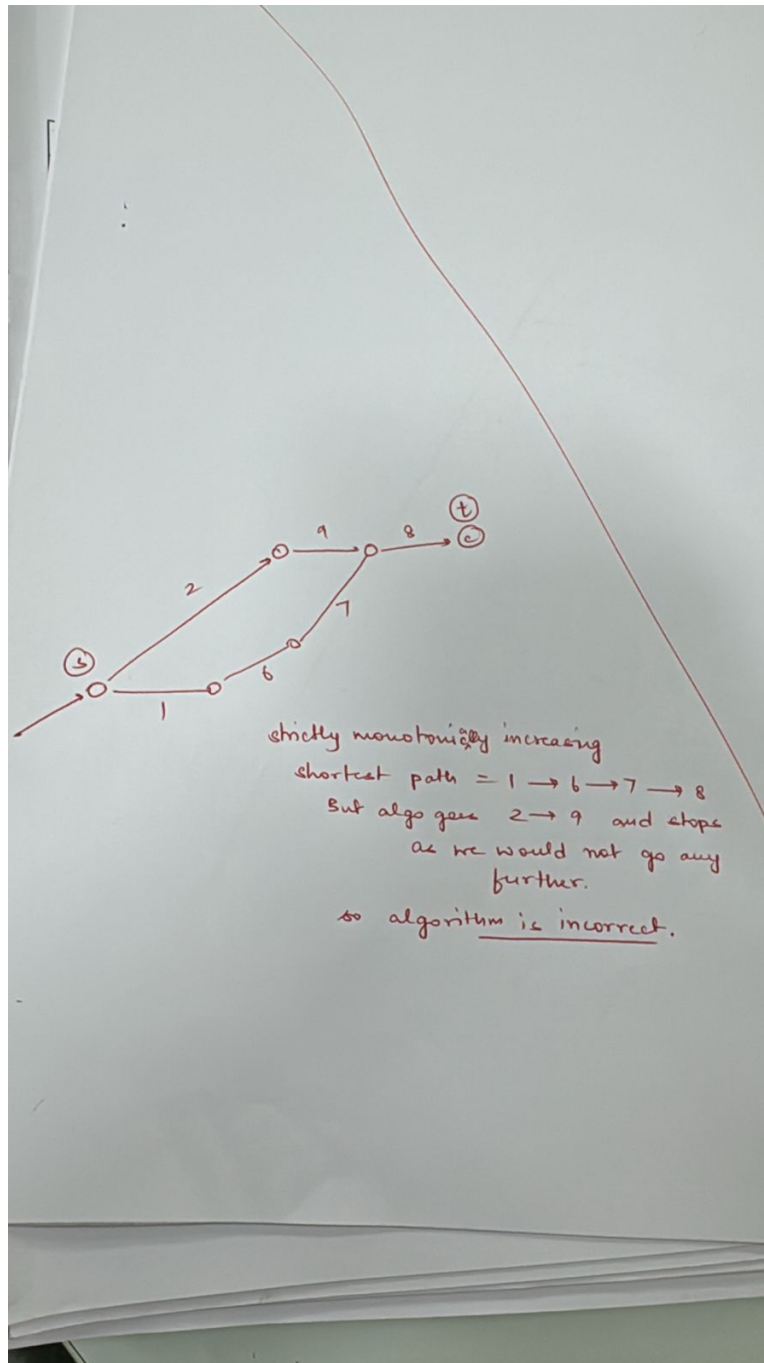 t
9
8
2
7
s
6
1
strictly monotonically increasing
shortest path = 1 → 6 → 7 → 8
But algo goes 2 → 9 and stops
as we would not go any
further.
so algorithm is incorrect.